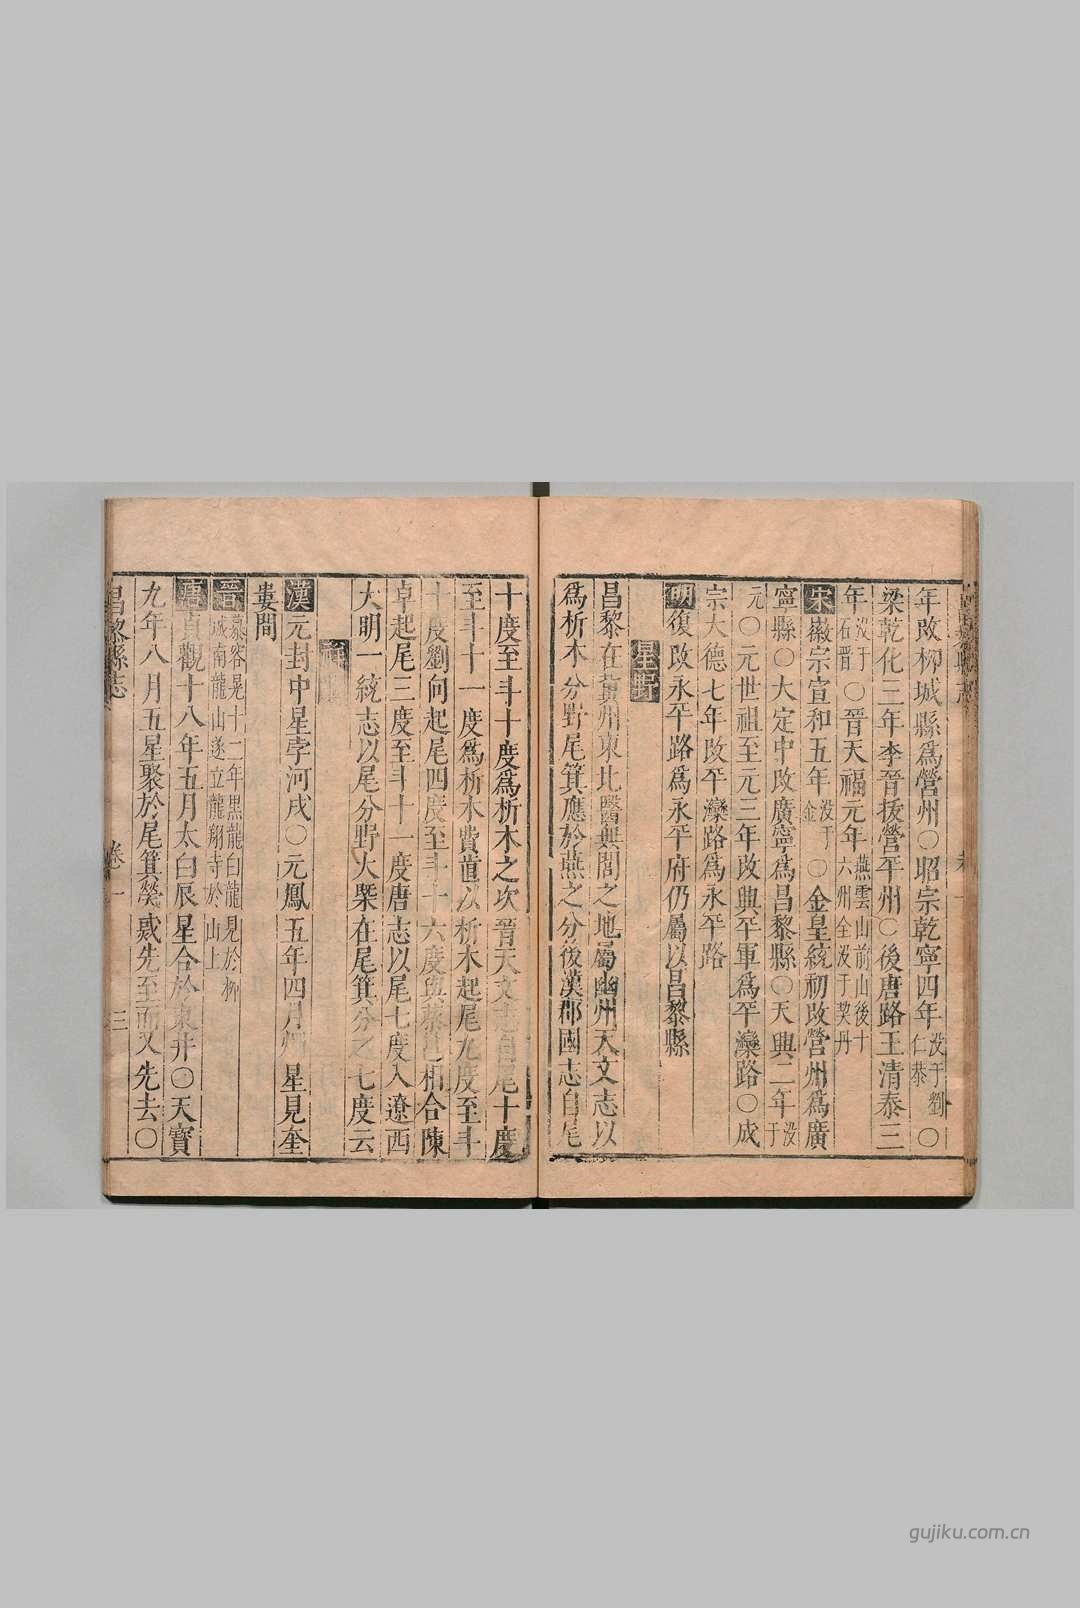 年改柳城縣爲營州○昭宗乾寧四年没于劉仁恭○
梁乾化三年李晉拔營平州○後唐路王清泰三
年没于石晉○晉天福元年燕雲山前山後十六州全没于契丹
宋徽宗宣和五年没于金○金皇統初改營州爲廣
寧縣○大定中改廣寧爲昌黎縣○天興二年没于
元○元世祖至元三年改興平軍爲平灤路○成
宗大德七年改平灤路爲永平路
明復改永平路爲永平府仍屬以昌黎縣
星野
昌黎在冀州東北醫無閭之地屬幽州天文志以
爲析木分野尾箕應於燕之分後漢郡國志自尾
十度至斗十度爲析木之次晉天文志自尾十度
至斗十一度爲析木費直以析木起尾九度至斗
十度劉向起尾四度至斗十六度與蔡邕相合陳
卓起尾三度至斗十一度唐志以尾七度入遼西
大明一統志以尾分野大槩在尾箕分之七度云
漢元封中星孛河戌○元鳳五年四月州星見奎
婁間
晉慕容晃十二年黑龍白龍見於柳城南龍山遂立龍翔寺於山上
唐貞觀十八年五月太白辰星合於東井○天寶
九年八月五星聚於尾箕熒惑先至而又先去○
昌黎縣志 卷一 三